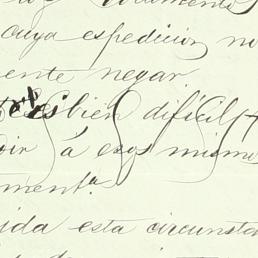 documento
cuya espedicion no
ente negar
es bien dificil
oir á esos mismo
menta
ida esta circunsta